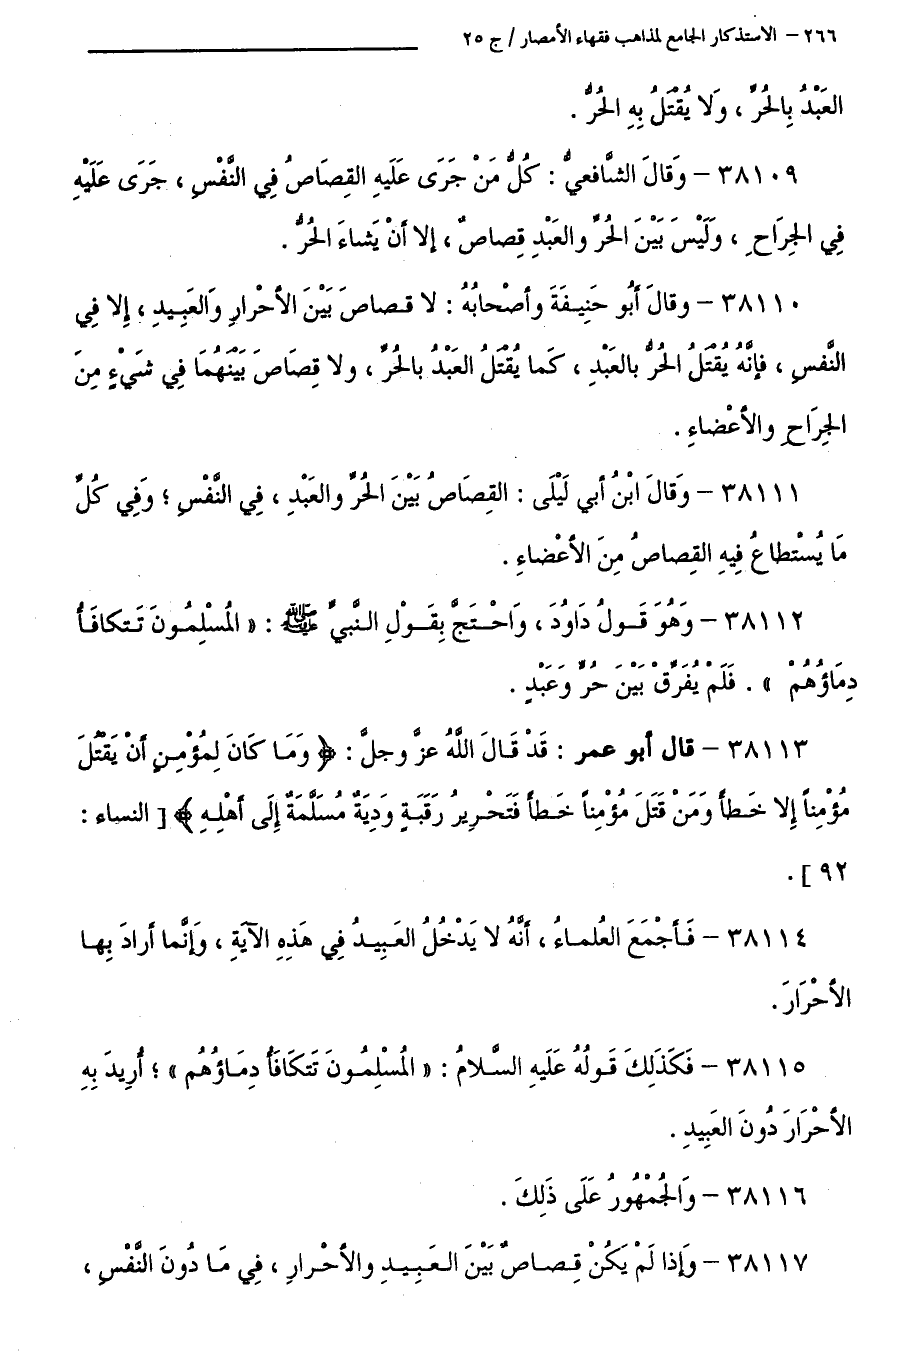 ٢٦٦ – الاستذكار الجامع لمذاهب فقهاء الأمصار / ج ٢٥
العَبْدُ بِالحُرِّ ، وَلا يُقْتَلُ بِهِ الحُرُّ .
٣٨١٠٩ – وَقالَ الشَّافعيُّ : كُلُّ مَنْ جَرَى عَلَيهِ القِصَاصُ فِي النَّفْسِ ، جَرَى عَلَيْهِ
فِي الجِرَاحِ ، وَلَيْسَ بَيْنَ الحُرِّ والعَبْدِ قِصاصٌ ، إلا أنْ يَشاءَ الحُرُّ .
٣٨١١٠ – وقالَ أَبُو حَنِيفَةَ وأصْحابُهُ : لا قصاصَ بَيْنَ الأحْرارِ وَالعَبِيدِ ، إِلا فِي
النَّفسِ ، فإنَّهُ يُقْتَلُ الحُرُّ بالعَبْدِ ، كَما يُقْتَلُ العَبْدُ بالحُرِّ ، ولا قِصَاصَ بَيْنَهُمَا فِي شَيْءٍ مِنَ
الجِرَاحِ والأعْضاءِ .
٣٨١١١ – وَقَالَ ابْنُ أبي لَيْلَى : القِصَاصُ بَيْنَ الحُرِّ والعَبْدِ ، فِي النَّفْسِ ؛ وَفِي كُلِّ
مَا يُسْتطاعُ فِيهِ القِصاصُ مِنَ الأعْضاءِ .
٣٨١١٢ – وَهُوَ قَولُ دَاوُدَ ، وَاحْتجَّ بِقَولِ النَّبيِّ ﷺ : « المُسْلِمُونَ تَتكافَأُ
دِمَاؤُهُمْ » . فَلَمْ يُفَرِّقْ بَيْنَ حُرٍّ وَعَبْدٍ .
٣٨١١٣ – قال أبو عمر : قَدْ قَالَ اللَّهُ عزَّ وجلَّ : ﴿ وَمَا كَانَ لِمُؤْمِنٍ أنْ يَقْتُلَ
مُؤْمِناً إلا خَطأً وَمَنْ قَتَلَ مُؤْمِناً خَطأً فَتَحْرِيرُ رَقَبَةٍ ودِيَةٌ مُسَلَّمَةٌ إلَى أهْلِهِ ﴾ [ النساء :
٩٢ ] .
٣٨١١٤ – فَأجْمَعَ العُلماءُ ، أنَّهُ لا يَدْخُلُ العَبِيدُ فِي هَذِهِ الآيَةِ ، وَإنَّما أرادَ بِها
الأحْرَارَ .
٣٨١١٥ – فَكَذَلِكَ قَولُهُ عَلَيهِ السَّلامُ : « المُسْلِمُونَ تَتَكَافَأُ دِمَاؤُهُم » ؛ أُرِيدَ بِهِ
الأحْرَارَ دُونَ العَبِيدِ .
٣٨١١٦ – وَالجُمْهُورُ عَلَى ذَلِكَ .
٣٨١١٧ – وَإذا لَمْ يَكُنْ قِصاصٌ بَيْنَ العَبِيدِ والأحْرارِ ، فِي مَا دُونَ النَّفْسِ ،